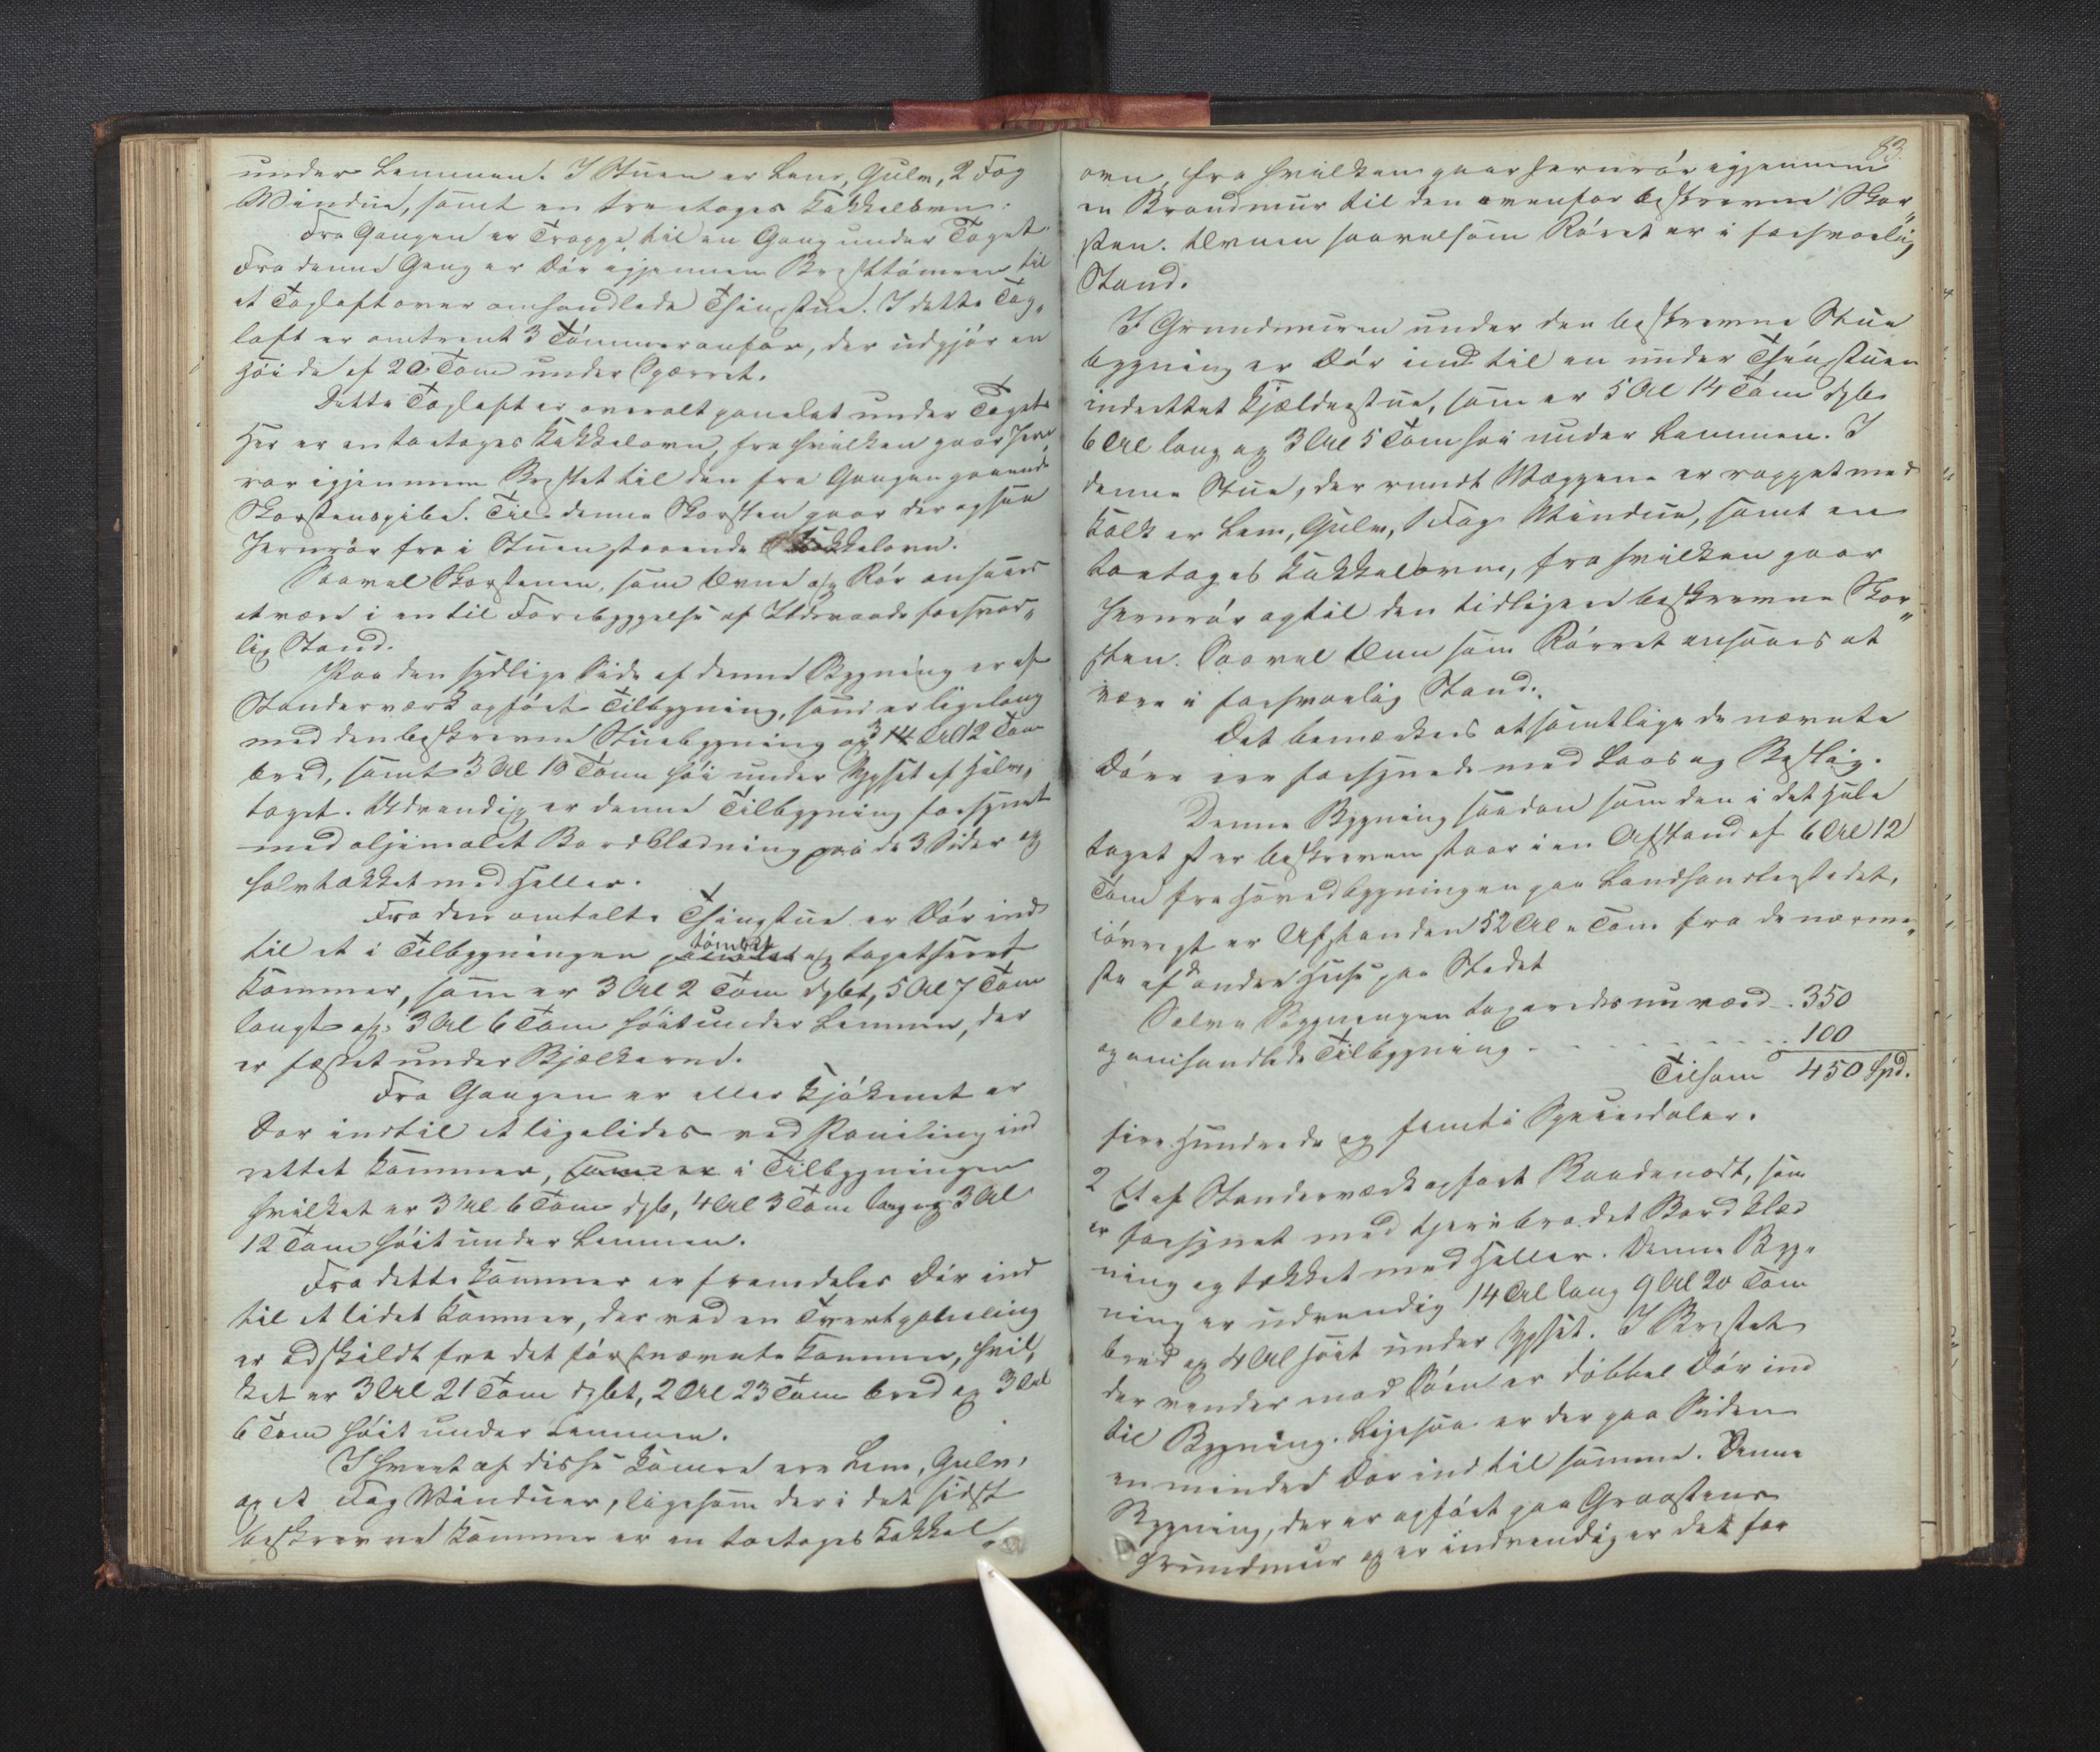 under Lemmen. I Stuen er Lem, Gulv, 2 Fag
Vinduer, samt en tre etages Kakkelovn.
Fra Gangen er Trappe til en Gang under Taget.
Fra denne Gang er Dør igjennem Brysttømren til
et Tagloft over omhandlede Thingstue. I dette Tag„
loft er omtrent 3 Tømmeromfar, der udgjør en
Høide af 20 Tom under Spærret.
Dette Tagloft er overalt panelet under Taget
Her er en toetages Kakkelovn, fra hvilken gaar Jern
rør igjennem Brystet til den fra Gangen gaaende
Skorstenspibe. Til denne Skorsten gaar der ogsaa
Jernrør fra i Stuen staaende Kakkelovn.
Saavel Skorstenen, som Ovne og Rør ansaaes
at være i en til Forebyggelse af Ildsvaade forsvar„
lig Stand.
Paa den sydlige Side af denne Bygning er af
Standerværk opført Tilbygning, som er ligelang
med den beskrevne Stuebygning og 3 14 Al 12 Tom
bred, samt 3 Al 19 Tom høi under Opset af Halv„
taget. Udvendig er denne Tilbygning forsynet
med oljemalet Bordklædning paa de 3 Sider og
halvtækket med Heller.
Fra den omtalte Thingstue er Dør ind
til et i Tilbygningen panelet tømret og tapetseret
Kammer, som er 3 Al 2 Tom dybt, 5 Al 7 Tom
langt og 3 Al 6 Tom høit under Lemmen, der
er fæstet under Bjelkerne.
Fra Gangen er eller Kjøkenet er
Dør ind til et ligeledes ved Paneling ind
rettet Kammer, som er i Tilbygningen
hvilket er 3 Al 6 Tom dyb, 4 Al 3 Tom lang og 3 Al
12 Tom høit under Lemmen.
Fra dette Kammer er fremdeles Dør ind
til et lidet Kammer, der ved en Tvertpaneling
er adskildt fra det førstnævnte Kammer, hvil„
ket er 3 Al 21 Tom dybt, 2 Al 23 Tom bred og 3 Al
6 Tom høit under Lemmen.
I hvert af disse Kamre ere Lem, Gulv,
og et Fag Vinduer, ligesom der i det sidst
beskrevne Kammer er en toetages Kakkel„
83.
ovn, fra hvilken gaar Jernrør igjennem
en Brandmur til den ovenfor beskrevne Skor„
sten. Ovnen saavelsom Røret er i forsvarlig
Stand.
I Grundmuren under den beskrevne Stue
bygning er Dør ind til en under Thingstuen
indrettet Kjælderstue, som er 5 Al 14 Tom dyb
6 Al lang og 3 Al 5 Tom høi under Lemmen. I
denne Stue, der rundt Væggene er rappet med
Kalk er Lem, Gulv, 1 Fag Vinduer, samt en
toetages Kakkelovn, fra hvilken gaar
Jernrør og til den tidligere beskrevne Skor„
sten. Saavel Ovn som Rørret ansaaes at
være i forsvarlig Stand.
Det bemærkes at samtlige de nævnte
Døre ere forsynede med Laas og Beslag.
Denne Bygning saadan som den i det Hele
taget er beskreven staar i en Afstand af 6 Al 12
Tom fra Hovedbygningen paa Landhandlerstedet,
iøvrigt er Afstanden 52 Al „ Tom fra de nærme„
ste af andre Huse paa Stedet
Selve Bygningen taxeredes nu værd . 350
og omhandlede Tilbygning . . . . . . . . . 100
Tilsam 450 Spd.
fire Hundrede og femti Speciedaler.
2 Et af Standerværk opført Baadenøst, som
er forsynet med tjærebredet Bordklæd
ning og tækket med Heller. Denne Byg„
ning er udvendig 14 Al lang 9 Al 20 Tom
bred og 4 Al høit under Opset. I Brystet
der vender mod Søen er dobbel Dør ind
til Bygning. Ligesaa er der paa Siden
en mindre Dør ind til samme. Denne
Bygning, der er opført paa Graastens
Grundmur og er indvendig er det for